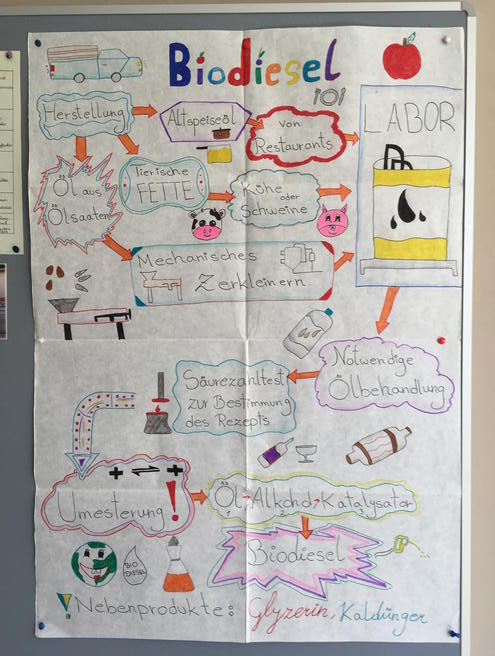 Biodiesel
101
Herstellung
Altspeiseöl
von
Restaurants
LABOR
Öl aus
Ölsaaten
Tierische
FETTE
Kühe
oder
Schweine
Mechanisches
Zerkleinern
Notwendige
Ölbehandlung
Säurezahltest
zur Bestimmung
des Rezepts
Umesterung!
Öl → Alkohol → Katalysator
Biodiesel
BIO
DIESEL
! Nebenprodukte: Glyzerin, Kaldünger